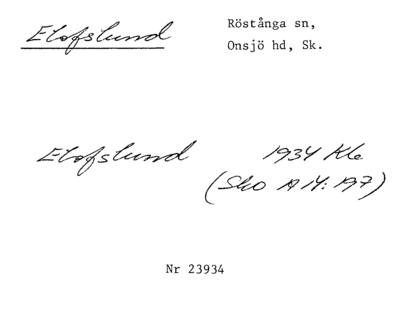 Elofslund
Röstånga sn,
Onsjö hd, Sk.
Elofslund 1934 Kle
(Sko A 14: 197)
Nr 23934